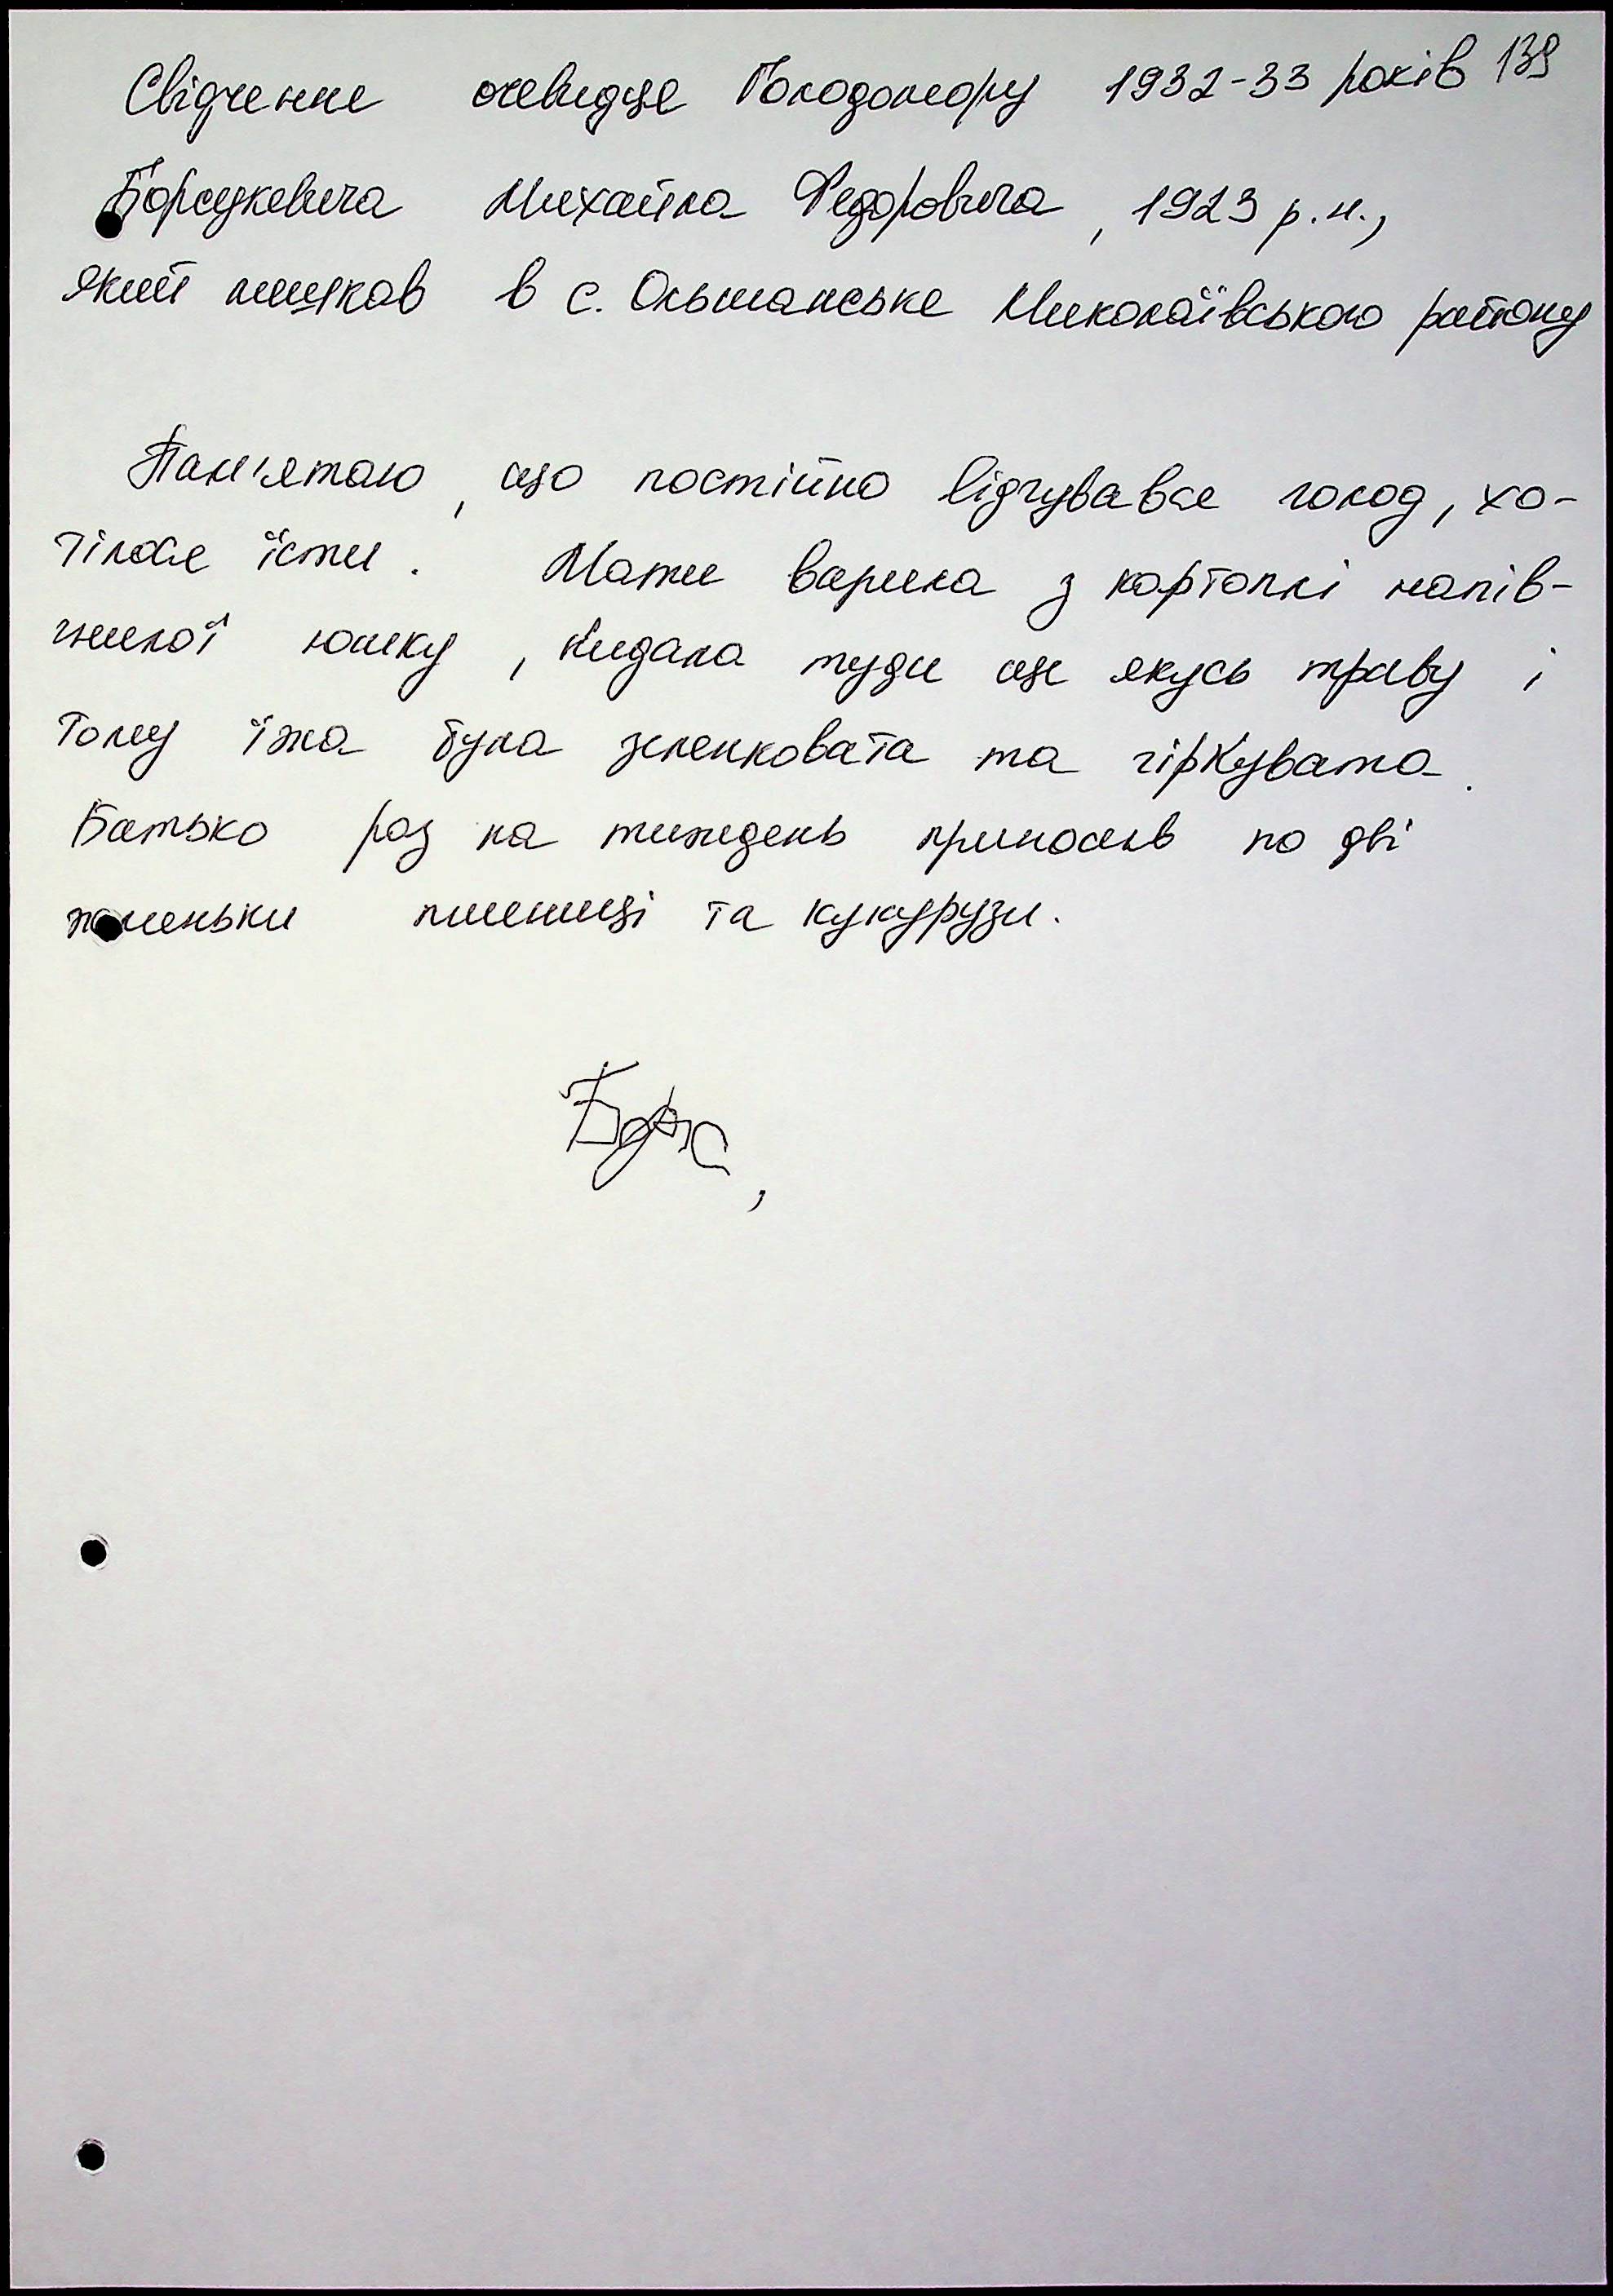 Свідчення очевидця Голодомору 1932-33 років 139
Борсукевича Михайла Федоровича, 1923 р.н.,
який мешкав в с. Ольшанське Миколаївського району
Пам'ятаю, що постійно відчувався голод, хо-
тілося їсти. Мати варила з картоплі напів-
гнилої юшку, кидала туди ще якусь траву і
тому їжа була зеленковата та гіркувата.
Батько раз на тиждень приносив по дві
жменьки пшениці та кукурузи.